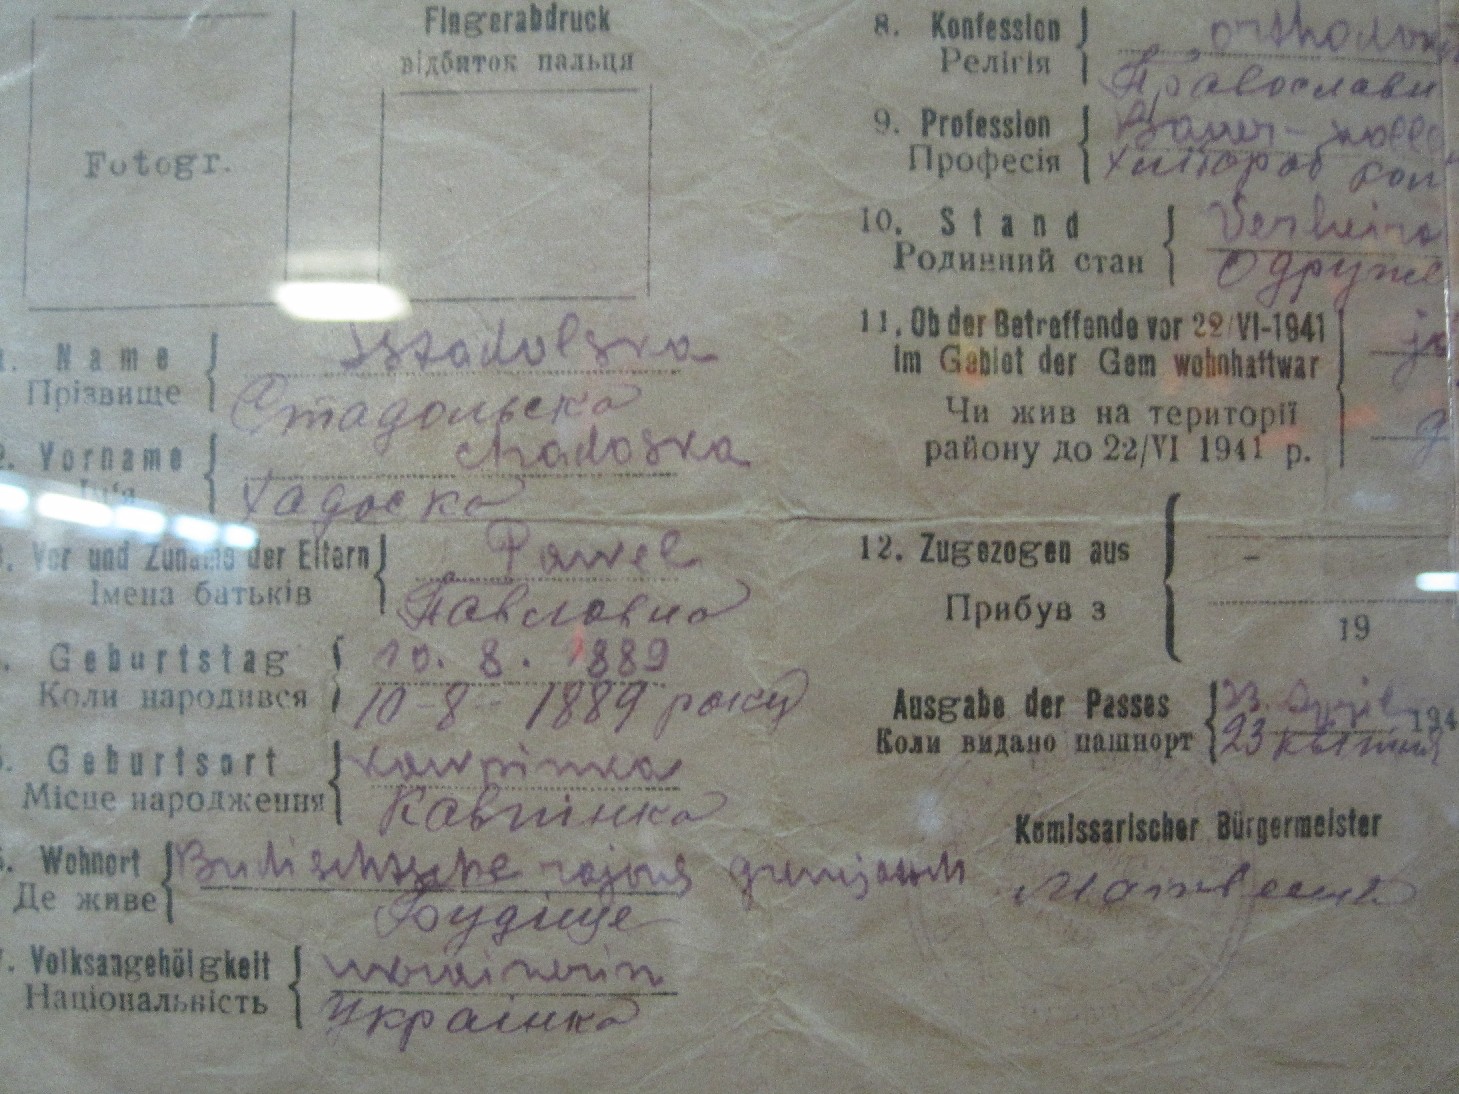 Fingerabdruck
відбиток пальця
Fotogr.
Name
Прізвище
Стадольська
Vorname
chadoska
Хадоска
Vor und Zuname der Eltern
Імена батьків
Pawel
Павловна
Geburtstag
Коли народився
10. 8. 1889
10-8-1889 року
Geburtsort
Місце народження
kawpinka
Кавпінка
Wohnort
Де живе
Budischtsche rajons
Будіще
Volksangehölgkeit
Національність
ukrainerin
Українка
8. Konfession
Релігія
orthodox
Православн
9. Profession
Професія
Bauer-
Хлібороб
10. Stand
Родинний стан
Verheira
Одруже
11. Ob der Betreffende vor 22/VI-1941
im Gebiet der Gem wohnhaftwar
Чи жив на території
району до 22/VI 1941 р.
12. Zugezogen aus
Прибув з
-
19
Ausgabe der Passes
Коли видано пашпорт
23. April 194
23 квітня
Komissarischer Bürgermeister